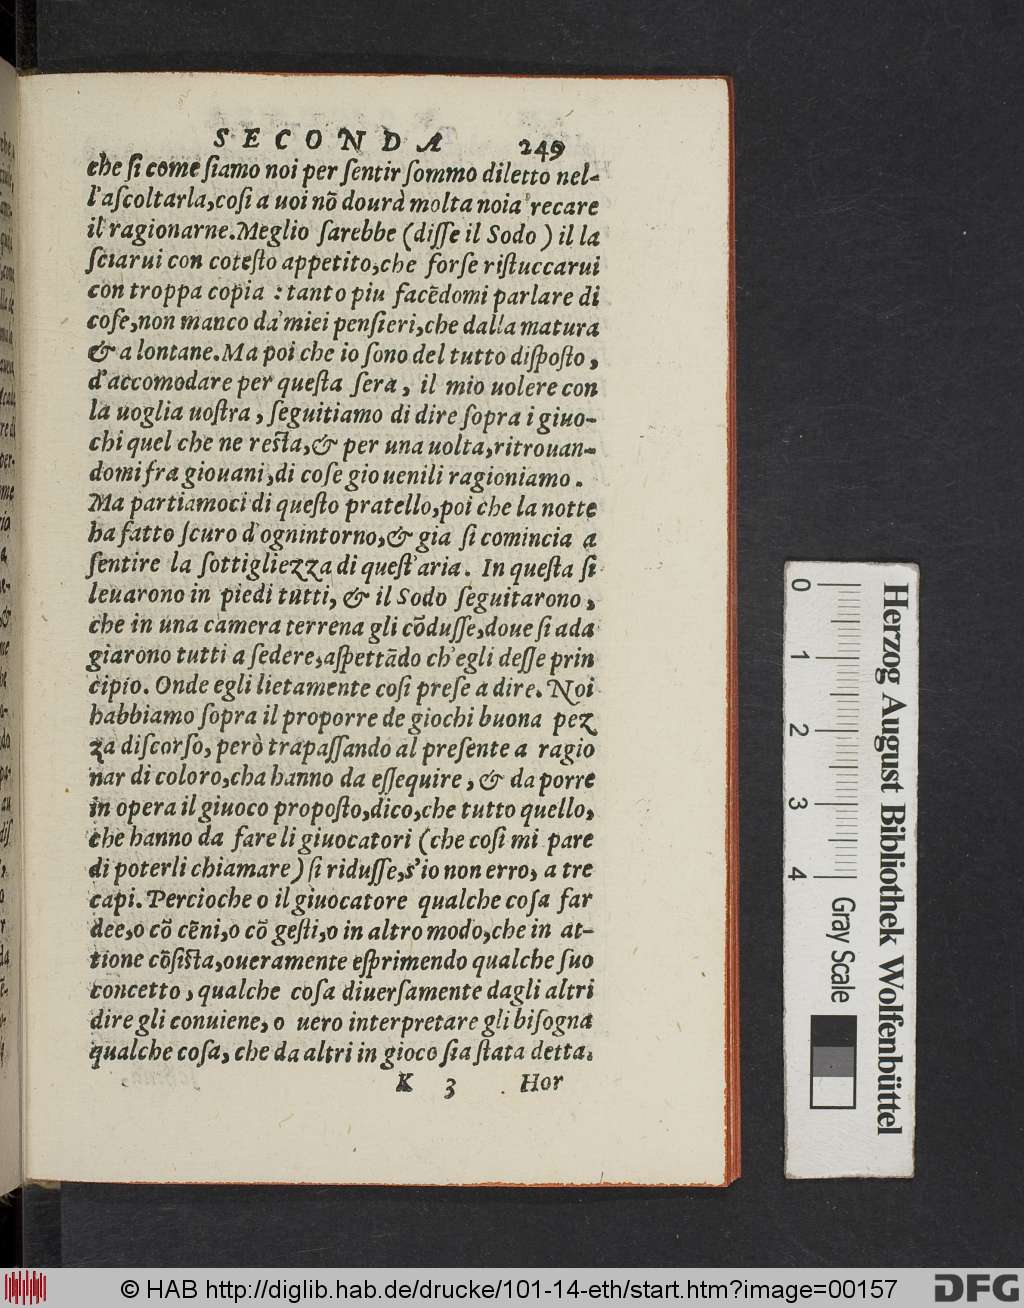 SECONDA 249
che ſi come ſiamo noi per ſentir ſommo diletto nel-
l'aſcoltarla,coſi a uoi nō dourà molta noia recare
il ragionarne.Meglio ſarebbe (diſſe il Sodo ) il la
ſciarui con coteſto appetito,che forſe riſtuccarui
con troppa copia : tanto piu facēdomi parlare di
coſe,non manco da'miei penſieri,che dalla matura
& a lontane.Ma poi che io ſono del tutto diſpoſto ,
d'accomodare per queſta ſera , il mio uolere con
la uoglia uoſtra , ſeguitiamo di dire ſopra i giuo-
chi quel che ne reſta,& per una uolta,ritrouan-
domi fra giouani,di coſe giouenili ragioniamo .
Ma partiamoci di queſto pratello,poi che la notte
ha fatto ſcuro d'ognintorno,& gia ſi comincia a
ſentire la ſottigliezza di queſt'aria. In queſta ſi
leuarono in piedi tutti, & il Sodo ſeguitarono ,
che in una camera terrena gli cōduſſe,doue ſi ada
giarono tutti a ſedere,aſpettādo ch'egli deſſe prin
cipio. Onde egli lietamente coſi preſe a dire. Noi
habbiamo ſopra il proporre de giochi buona pez
za diſcorſo, però trapaſſando al preſente a ragio
nar di coloro,cha hanno da eſſequire , & da porre
in opera il giuoco propoſto,dico,che tutto quello,
che hanno da fare li giuocatori (che coſi mi pare
di poterli chiamare) ſi riduſſe,s'io non erro, a tre
capi. Percioche o il giuocatore qualche coſa far
dee,o cō cēni,o cō geſti,o in altro modo,che in at-
tione cōſiſta,oueramente eſprimendo qualche ſuo
concetto , qualche coſa diuerſamente dagli altri
dire gli conuiene, o uero interpretare gli biſogna
qualche coſa, che da altri in gioco ſia ſtata detta.
K 3 Hor
0 1 2 3 4
Gray Scale
Herzog August Bibliothek Wolfenbüttel
© HAB http://diglib.hab.de/drucke/101-14-eth/start.htm?image=00157
DFG